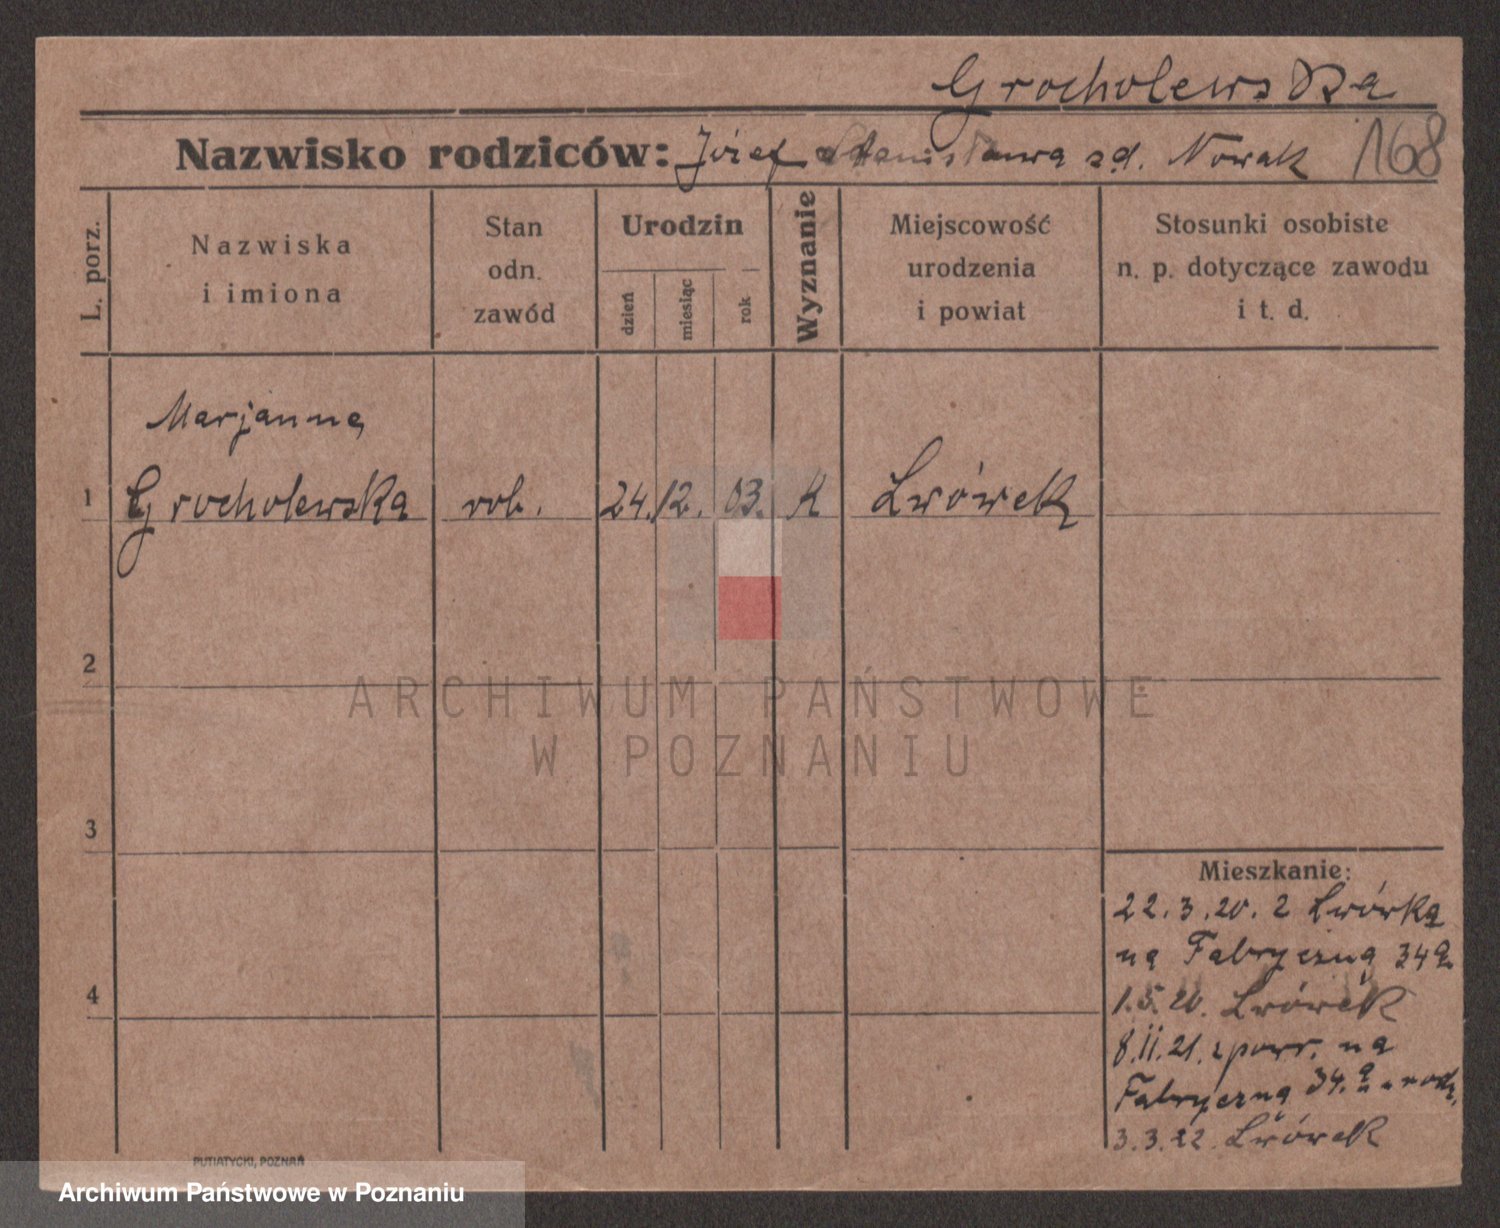 Grocholewska
Nazwisko rodziców: Józef Stanisława zd. Nowak 168
L. porz.
Nazwiska
i imiona
Stan
odn.
zawód
Urodzin
dzień
miesiąc
rok
Wyznanie
Miejscowość
urodzenia
i powiat
Stosunki osobiste
n. p. dotyczące zawodu
i t. d.
Marjanna
1 Grocholewska rob. 24. 12. 03. K Lwówek
2
ARCHIWUM PAŃSTWOWE
W POZNANIU
3
Mieszkanie:
22.3.20. z Lwówka
na Fabryczną 34a
4
1.5.20. Lwówek
8.II.21. z powr. na
Fabryczną 34.a rodz.
3.3.22. Lwówek
PUTIATYCKI, POZNAŃ
Archiwum Państwowe w Poznaniu